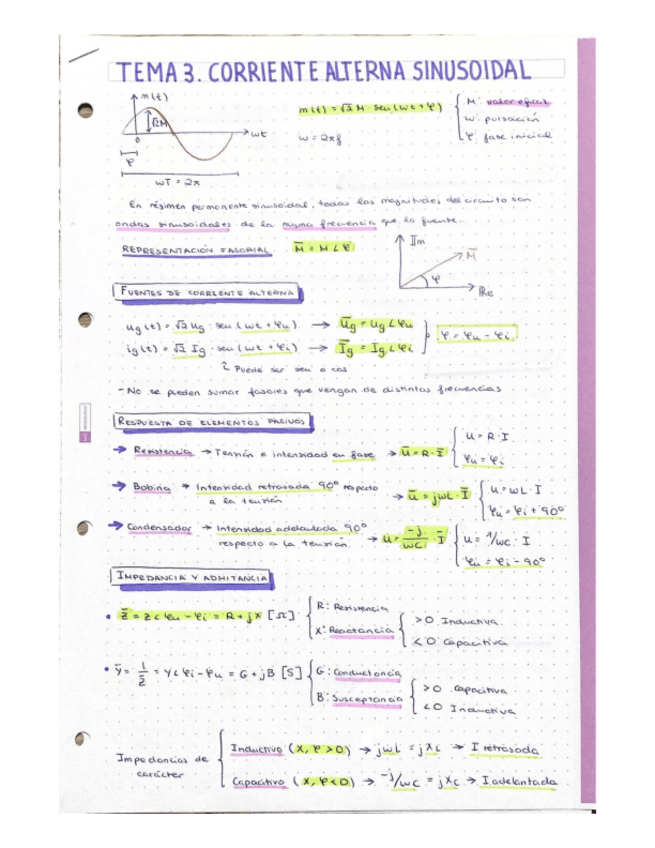 TEMA 3. CORRIENTE ALTERNA SINUSOIDAL
m(t)
√2M
wt
0
φ
wT = 2π
m(t) = √2 M · sen(wt + φ)
M: valor eficaz
w: pulsación
φ: fase inicial
w = 2πf
En régimen permanente sinusoidal, todas las magnitudes del circuito son
ondas sinusoidales de la misma frecuencia que la fuente.
REPRESENTACIÓN FASORIAL M̅ = M∠φ
Im
M̅
φ
Re
FUENTES DE CORRIENTE ALTERNA
ug(t) = √2 Ug · sen(wt + φu) → U̅g = Ug∠φu
ig(t) = √2 Ig · sen(wt + φi) → I̅g = Ig∠φi
φ = φu - φi
Puede ser sen o cos
- No se pueden sumar fasores que vengan de distintas frecuencias
RESPUESTA DE ELEMENTOS PASIVOS
→ Resistencia → Tensión e intensidad en fase → U̅ = R · I̅
U = R · I
φu = φi
→ Bobina → Intensidad retrasada 90º respecto
a la tensión
→ U̅ = jwL · I̅
U = wL · I
φu = φi + 90º
→ Condensador → Intensidad adelantada 90º
respecto a la tensión.
→ U = -j/wC · I̅
U = 1/wC · I
φu = φi - 90º
IMPEDANCIA Y ADMITANCIA
• Z̅ = Z∠φu - φi = R + jX [Ω]
R: Resistencia
X: Reactancia
>0 Inductiva
<0 Capacitiva
• Y̅ = 1/Z̅ = Y∠φi - φu = G + jB [S]
G: Conductancia
B: Susceptancia
>0 Capacitiva
<0 Inductiva
Impedancias de
carácter
Inductivo (X, φ > 0) → jwL = jXL → I retrasada
Capacitivo (X, φ < 0) → -j/wC = jXC → I adelantada